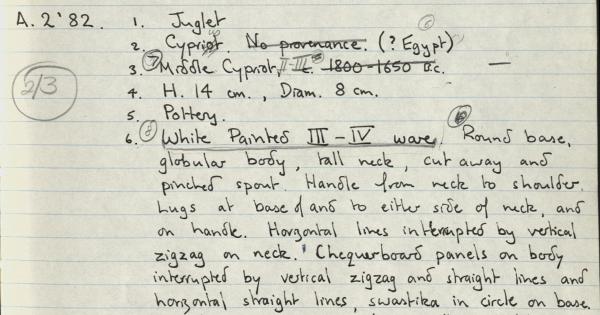 A.2'82. 1. Juglet
2. Cypriot. No provenance. (? Egypt) 6
3. 7 Middle Cypriot, II-III c. 1800-1650 B.C. —
4. H. 14 cm., Diam. 8 cm.
2/3
5. Pottery.
6. 8 White Painted III-IV ware. 10 Round base,
globular body, tall neck, cut away and
pinched spout. Handle from neck to shoulder.
Lugs at base of and to either side of neck, and
on handle. Horizontal lines interrupted by vertical
zigzag on neck. Chequerboard panels on body
interrupted by vertical zigzag and straight lines and
horizontal straight lines, swastika in circle on base.